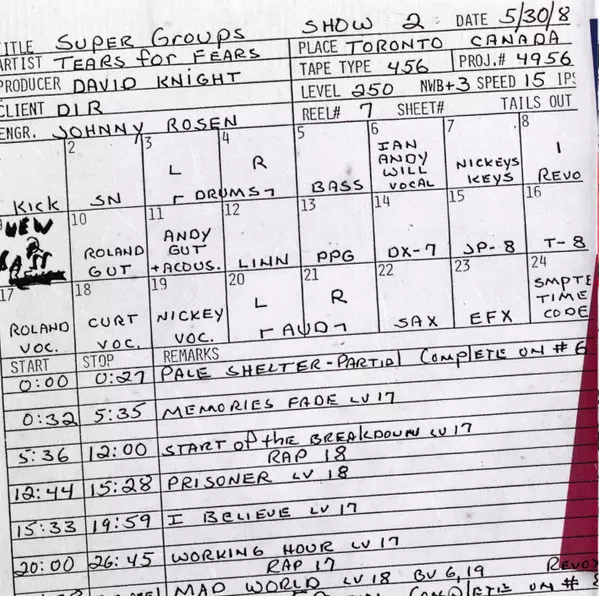 TITLE SUPER GROUPS SHOW 2 DATE 5/30/8
ARTIST TEARS FOR FEARS PLACE TORONTO CANADA
PRODUCER DAVID KNIGHT TAPE TYPE 456 PROJ.# 4956
CLIENT DIR LEVEL 250 NWB+3 SPEED 15 IPS
ENGR. JOHNNY ROSEN REEL# 7 SHEET# TAILS OUT
Kick
2 SN
3 L DRUMS
4 R
5 BASS
6 IAN ANDY WILL VOCAL
7 NICKEYS KEYS
8 1 REVO
NEW
10 ROLAND GUT
11 ANDY GUT + ACOUS.
12 LINN
13 PPG
14 DX-7
15 JP-8
16 T-8
17 ROLAND VOC.
18 CURT VOC.
19 NICKEY VOC.
20 L AUD
21 R
22 SAX
23 EFX
24 SMPTE TIME CODE
START STOP REMARKS
0:00 0:27 PALE SHELTER-PARTIAL COMPLETE ON # 6
0:32 5:35 MEMORIES FADE LV 17
5:36 12:00 START of the BREAKDOWN LV 17
RAP 18
12:44 15:28 PRISONER LV 18
15:33 19:59 I BELIEVE LV 17
20:00 26:45 WORKING HOUR LV 17
RAP 17 REVOX
MAD WORLD LV 18 BV 6,19
COMPLETE ON # 8